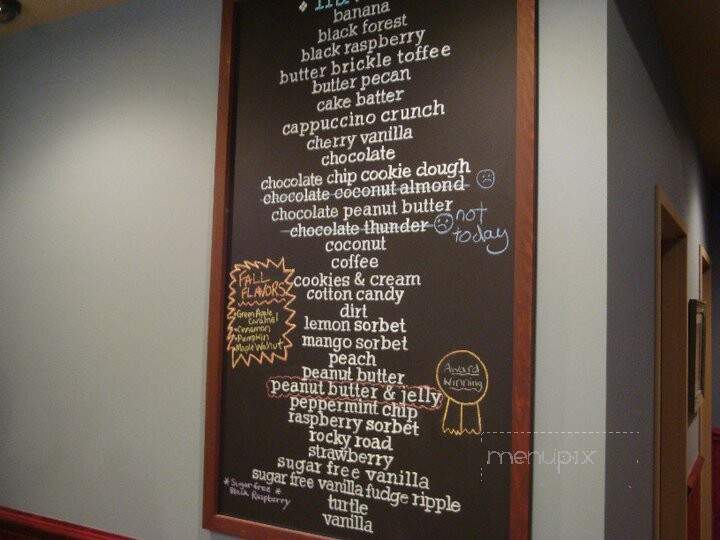 banana
black forest
black raspberry
butter brickle toffee
butter pecan
cake batter
cappuccino crunch
cherry vanilla
chocolate
chocolate chip cookie dough
chocolate coconut almond
chocolate peanut butter
chocolate thunder
not
today
coconut
coffee
cookies & cream
cotton candy
dirt
lemon sorbet
mango sorbet
peach
peanut butter
peanut butter & jelly
peppermint chip
raspberry sorbet
rocky road
strawberry
sugar free vanilla
sugar free vanilla fudge ripple
turtle
vanilla
FALL
FLAVORS
•Green Apple
Caramel
•Cinnamon
•Pumpkin
•Maple Walnut
Award
Winning
*Sugar free*
Black Raspberry
menupix